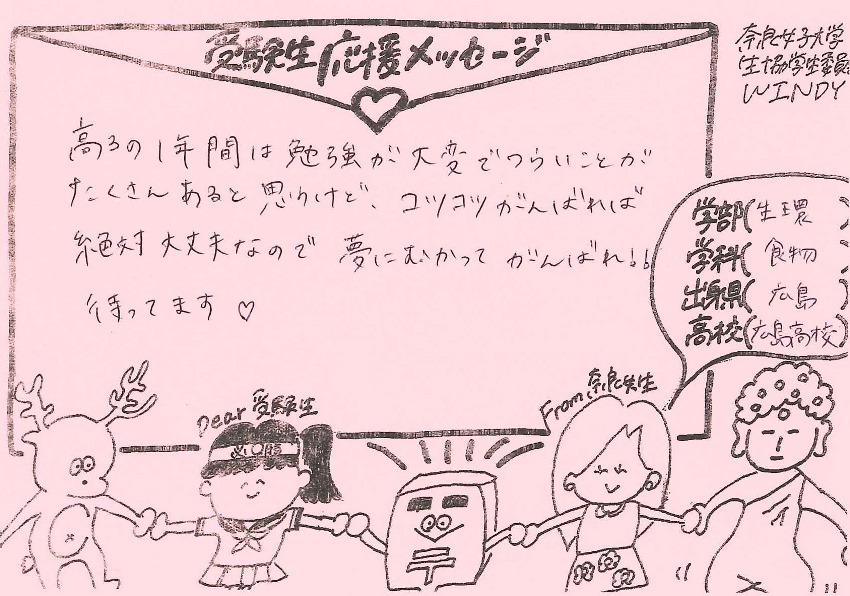 受験生応援メッセージ
奈良女子大学
生協学生委員
WINDY
高3の1年間は勉強が大変でつらいことが
たくさんあると思うけど、コツコツがんばれば
絶対大丈夫なので 夢にむかって がんばれ!!
待ってます♡
学部(生環)
学科(食物)
出身県(広島)
高校(広島高校)
Dear 受験生
From 奈良女生
必勝
〒